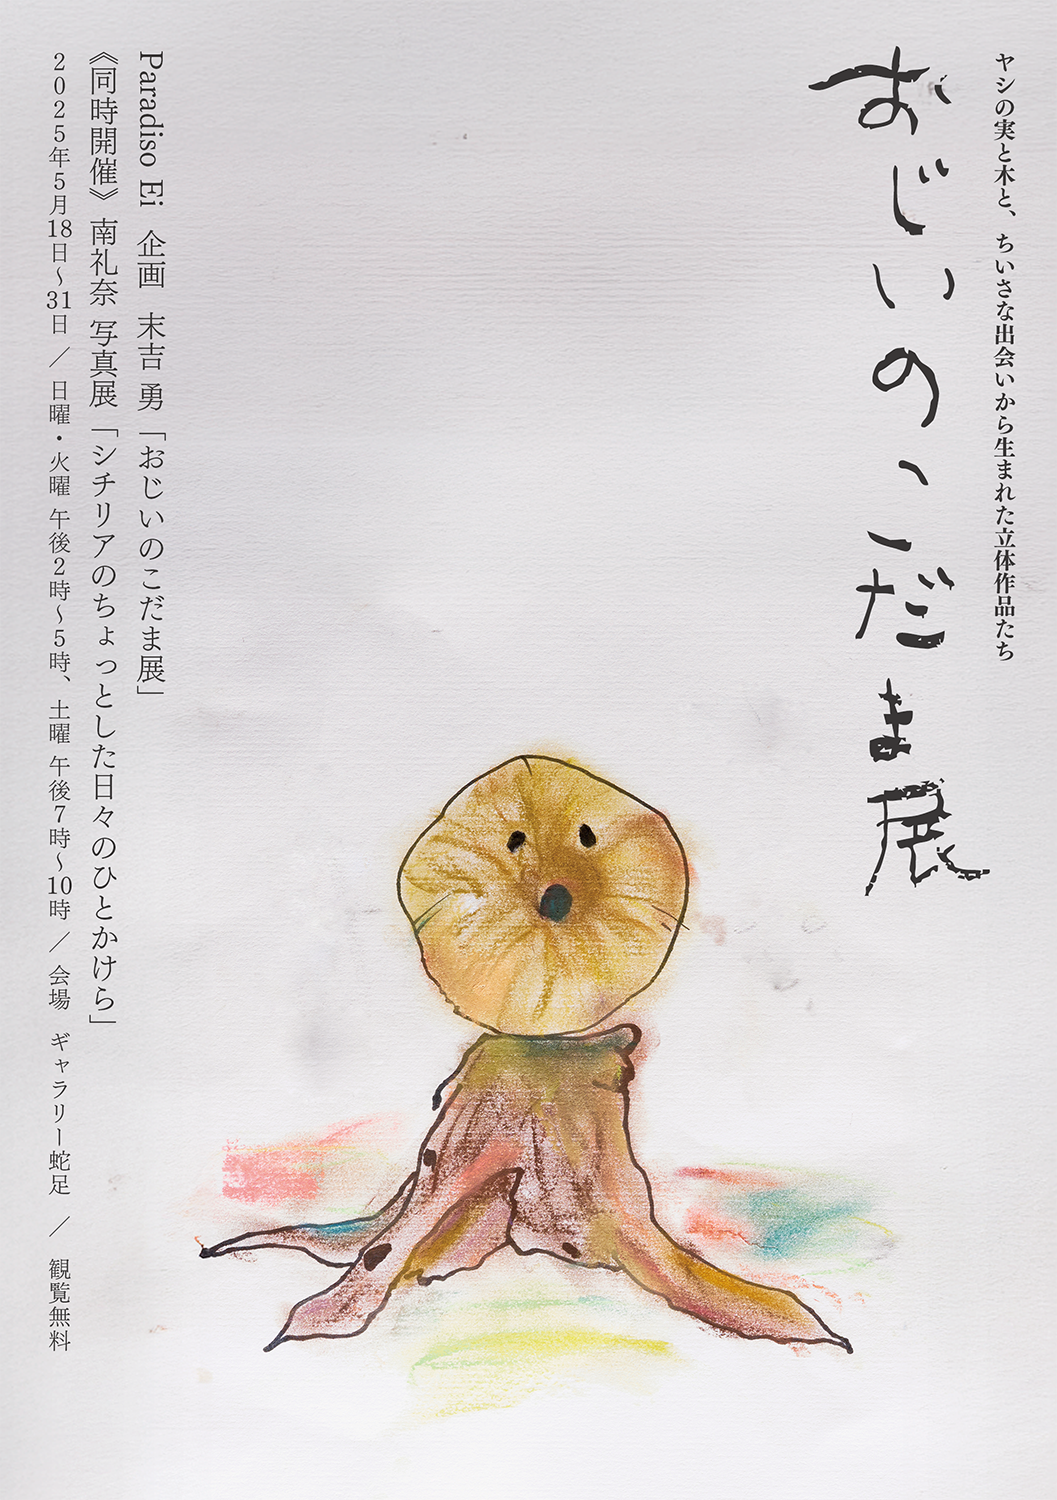 ヤシの実と木と、ちいさな出会いから生まれた立体作品たち
おじいのこだま展
Paradiso Ei 企画 末吉 勇「おじいのこだま展」
《同時開催》 南礼奈 写真展「シチリアのちょっとした日々のひとかけら」
2025年5月18日〜31日 / 日曜・火曜 午後2時〜5時、土曜 午後7時〜10時 / 会場 ギャラリー蛇足 / 観覧無料